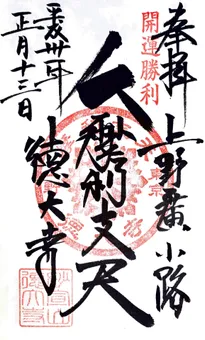 奉拝 上野廣小路
開運勝利
摩利支天
徳大寺
平成卅一年
正月十三日
東京